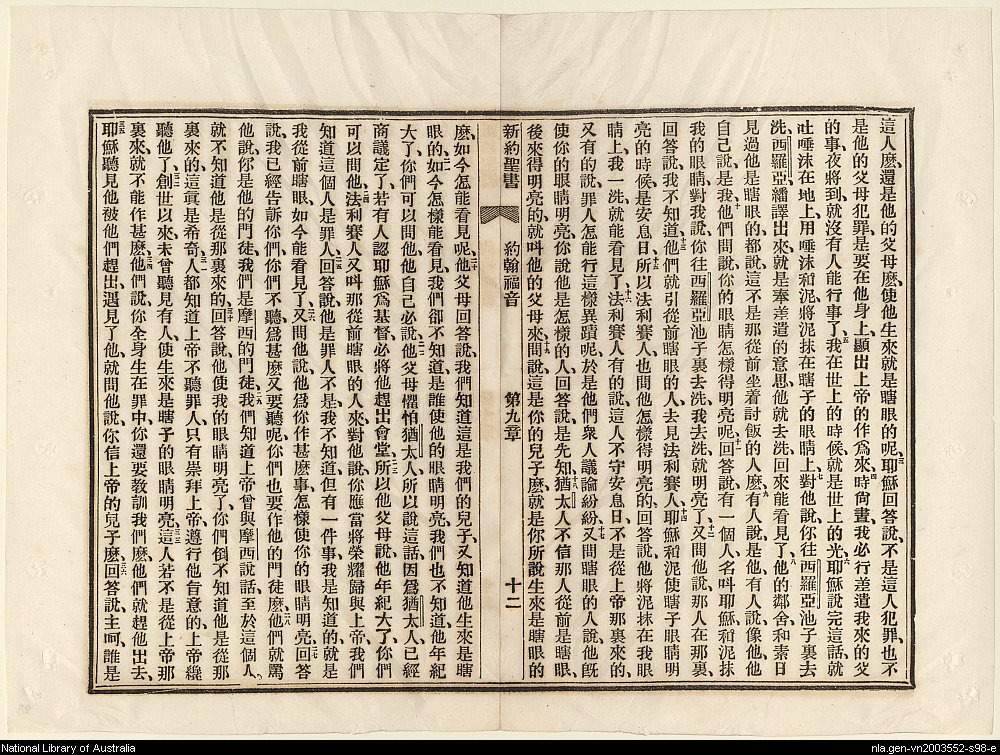 這人麽、還是他的父母麽、使他生來就是瞎眼的呢、三耶穌回答說、不是這人犯罪、也不
是他的父母犯罪、是要在他身上顯出上帝的作爲來、四時尙晝、我必行差遣我來的父
的事、夜將到、就沒有人能行事了、五我在世上的時候、就是世上的光、六耶穌說完這話、就
吐唾沫在地上、用唾沫和泥、將泥抹在瞎子的眼睛上、七對他說、你往西羅亞池子裏去
洗、西羅亞繙譯出來、就是奉差遣的意思、他就去洗、回來能看見了、八他的鄰舍和素日
見過他是瞎眼的、都說、這不是那從前坐着討飯的人麽、九有人說、是他、有人說、像他、他
自己說、是我、十他們問說、你的眼睛怎樣得明亮呢、十一回答說、有一個人名叫耶穌、和泥抹
我的眼睛、對我說、你往西羅亞池子裏去洗、我去洗、就明亮了、十二又問他說、那人在那裏、
回答說、我不知道、十三他們就引從前瞎眼的人、去見法利賽人、十四耶穌和泥使瞎子眼睛明
亮的時候、是安息日、十五所以法利賽人也問他怎樣得明亮的、回答說、他將泥抹在我眼
睛上、我一洗、就能看見了、十六法利賽人有的說、這人不守安息日、不是從上帝那裏來的、
又有的說、罪人怎能行這樣異蹟呢、於是他們衆人議論紛紛、十七又問瞎眼的人說、他旣
使你的眼睛明亮、你說他是怎樣的人、回答說、是先知、十八猶太人不信那人從前是瞎眼、
後來得明亮的、就叫他的父母來、十九問說、這是你的兒子麽、就是你所說生來是瞎眼的
新約聖書 約翰福音 第九章 十二
麽、如今怎能看見呢、二十他父母回答說、我們知道這是我們的兒子、又知道他生來是瞎
眼的、二一如今怎樣能看見、我們卻不知道、是誰使他的眼睛明亮、我們也不知道、他年紀
大了、你們可以問他、他自己必說、二二他父母懼怕猶太人、所以說這話、因爲猶太人已經
商議定了、若有人認耶穌爲基督、必將他趕出會堂、二三所以他父母說、他年紀大了、你們
可以問他、二四法利賽人又叫那從前瞎眼的人來、對他說、你應當將榮耀歸與上帝、我們
知道這個人是罪人、二五回答說、他是罪人不是、我不知道、但有一件事、我是知道的、就是
我從前瞎眼、如今能看見了、二六又問他說、他爲你作甚麽事、怎樣使你的眼睛明亮、二七回答
說、我已經告訴你們、你們不聽、爲甚麽又要聽呢、你們也要作他的門徒麽、二八他們就罵
他說、你是他的門徒、我們是摩西的門徒、二九我們知道上帝曾與摩西說話、至於這個人、
就不知道他是從那裏來的、三十回答說、他使我的眼睛明亮了、你們倒不知道他是從那
裏來的、這眞是希奇、三一人都知道上帝不聽罪人、只有崇拜上帝、遵行他旨意的、上帝纔
聽他了、三二創世以來、未曾聽見有人使生來是瞎子的眼睛明亮、三三這人若不是從上帝那
裏來、就不能作甚麽、三四他們說、你全身生在罪中、你還要教訓我們麽、他們就趕他出去、
三五耶穌聽見他被他們趕出、遇見了他、就問他說、你信上帝的兒子麽、三六回答說、主呵、誰是
National Library of Australia
nla.gen-vn2003552-s98-e